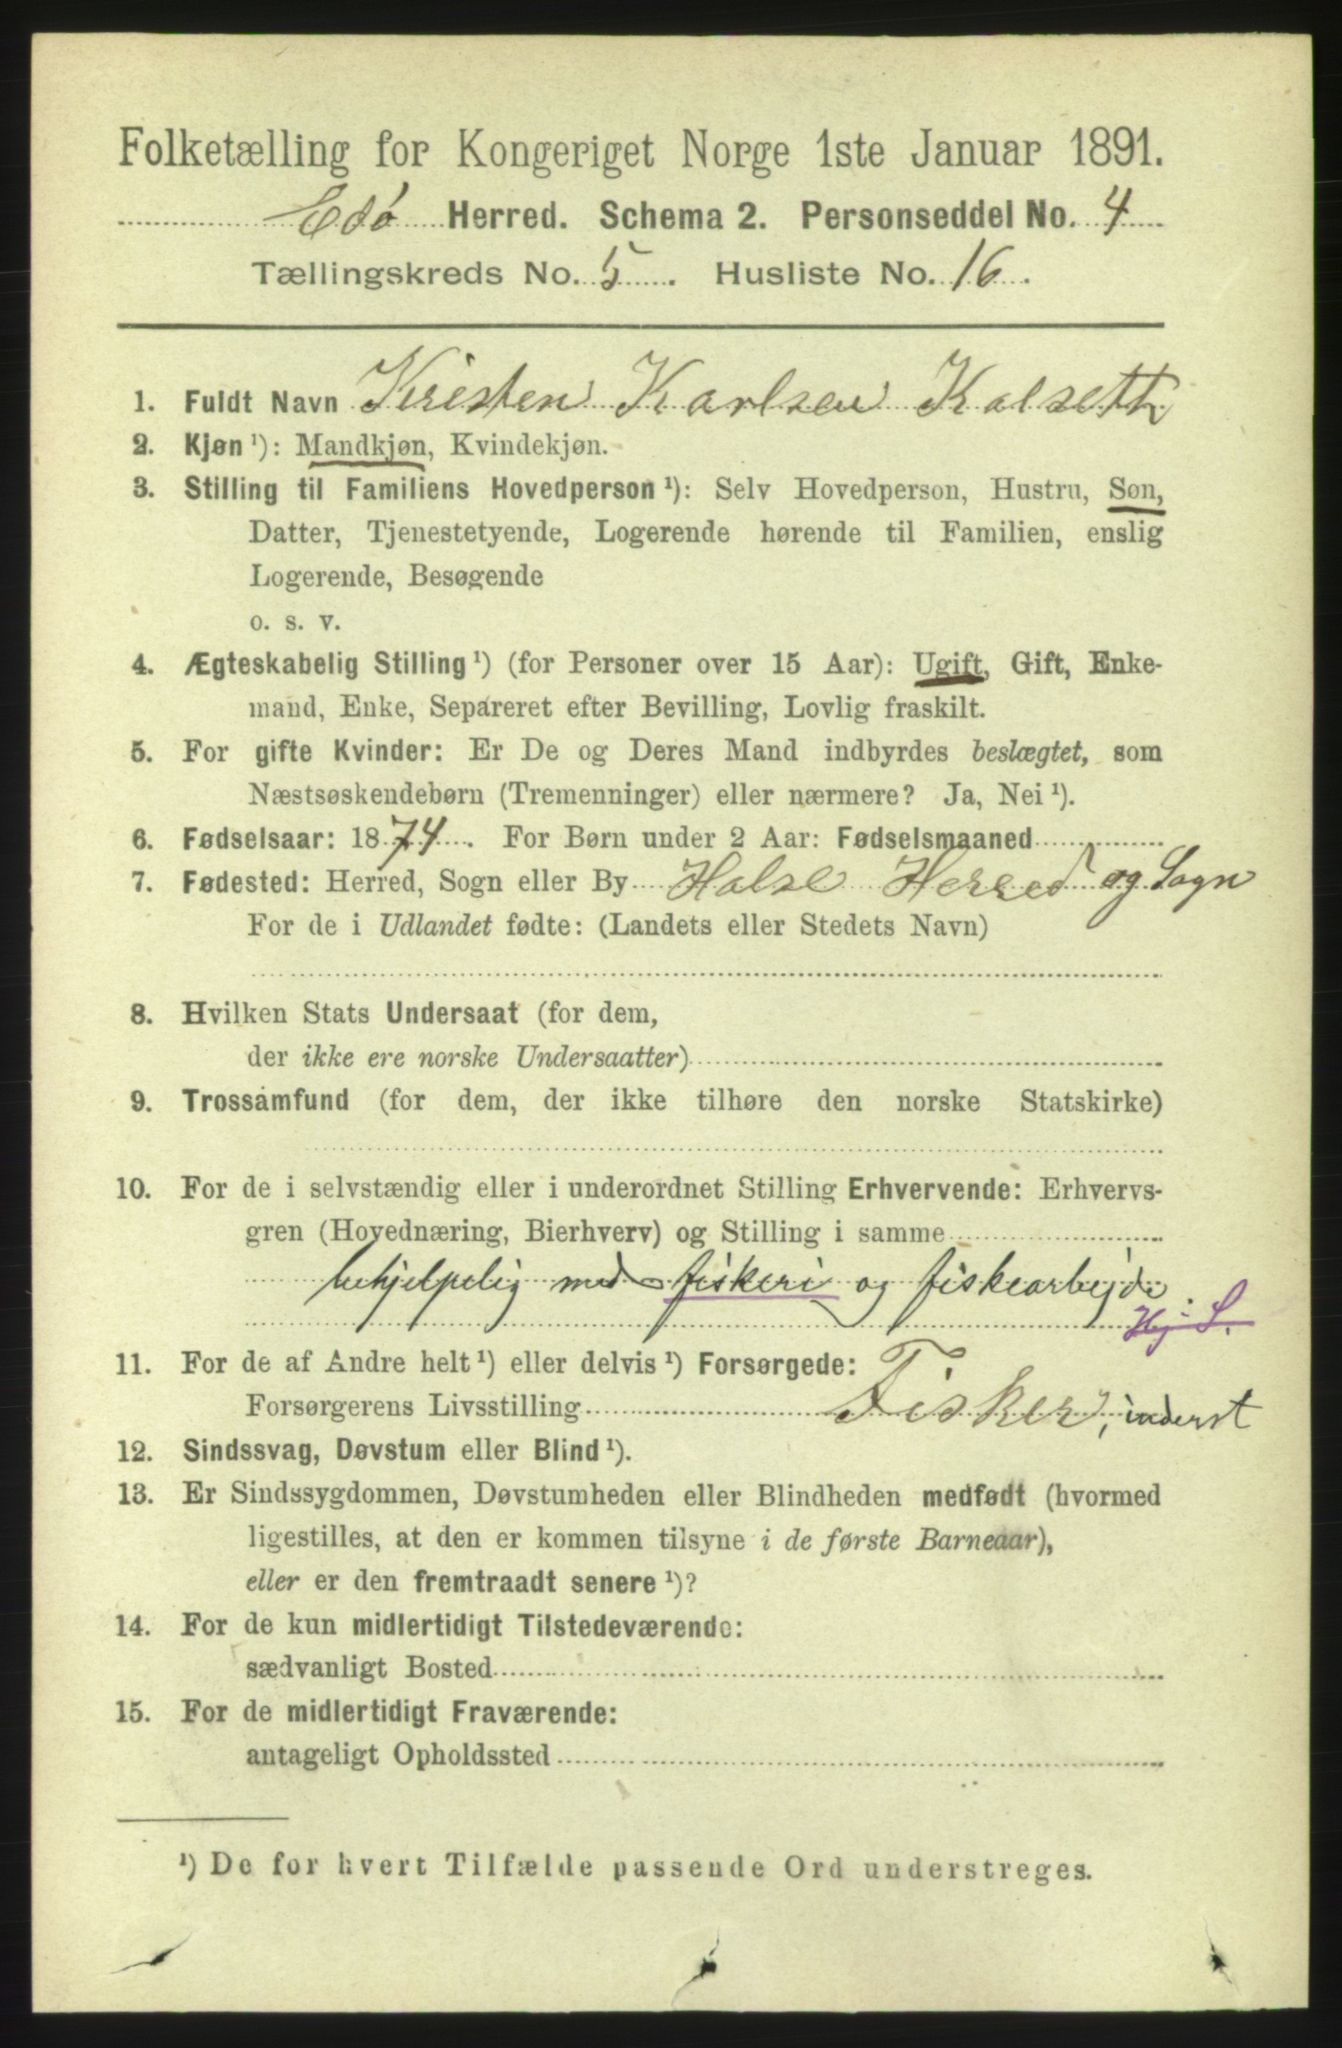 Folketælling for Kongeriget Norge 1ste Januar 1891.
Edø Herred. Schema 2. Personseddel No. 4
Tællingskreds No. 5. Husliste No. 16.
1. Fuldt Navn Kristen Karlsen Kalseth
2. Kjøn ¹): Mandkjøn, Kvindekjøn.
3. Stilling til Familiens Hovedperson ¹): Selv Hovedperson, Hustru, Søn,
Datter, Tjenestetyende, Logerende hørende til Familien, enslig
Logerende, Besøgende
o. s. v.
4. Ægteskabelig Stilling ¹) (for Personer over 15 Aar): Ugift, Gift, Enke-
mand, Enke, Separeret efter Bevilling, Lovlig fraskilt.
5. For gifte Kvinder: Er De og Deres Mand indbyrdes beslægtet, som
Næstsøskendebørn (Tremenninger) eller nærmere? Ja, Nei ¹).
6. Fødselsaar: 1874. For Børn under 2 Aar: Fødselsmaaned
7. Fødested: Herred, Sogn eller By Halse Herred og Sogn
For de i Udlandet fødte: (Landets eller Stedets Navn)
8. Hvilken Stats Undersaat (for dem,
der ikke ere norske Undersaatter)
9. Trossamfund (for dem, der ikke tilhøre den norske Statskirke)
10. For de i selvstændig eller i underordnet Stilling Erhvervende: Erhvervs-
gren (Hovednæring, Bierhverv) og Stilling i samme
behjelpelig med fiskeri og fiskearbejde
Hj. S.
11. For de af Andre helt ¹) eller delvis ¹) Forsørgede:
Forsørgerens Livsstilling Fisker, inderst
12. Sindssvag, Døvstum eller Blind ¹).
13. Er Sindssygdommen, Døvstumheden eller Blindheden medfødt (hvormed
ligestilles, at den er kommen tilsyne i de første Barneaar),
eller er den fremtraadt senere ¹)?
14. For de kun midlertidigt Tilstedeværende:
sædvanligt Bosted
15. For de midlertidigt Fraværende:
antageligt Opholdssted
¹) De for hvert Tilfælde passende Ord understreges.